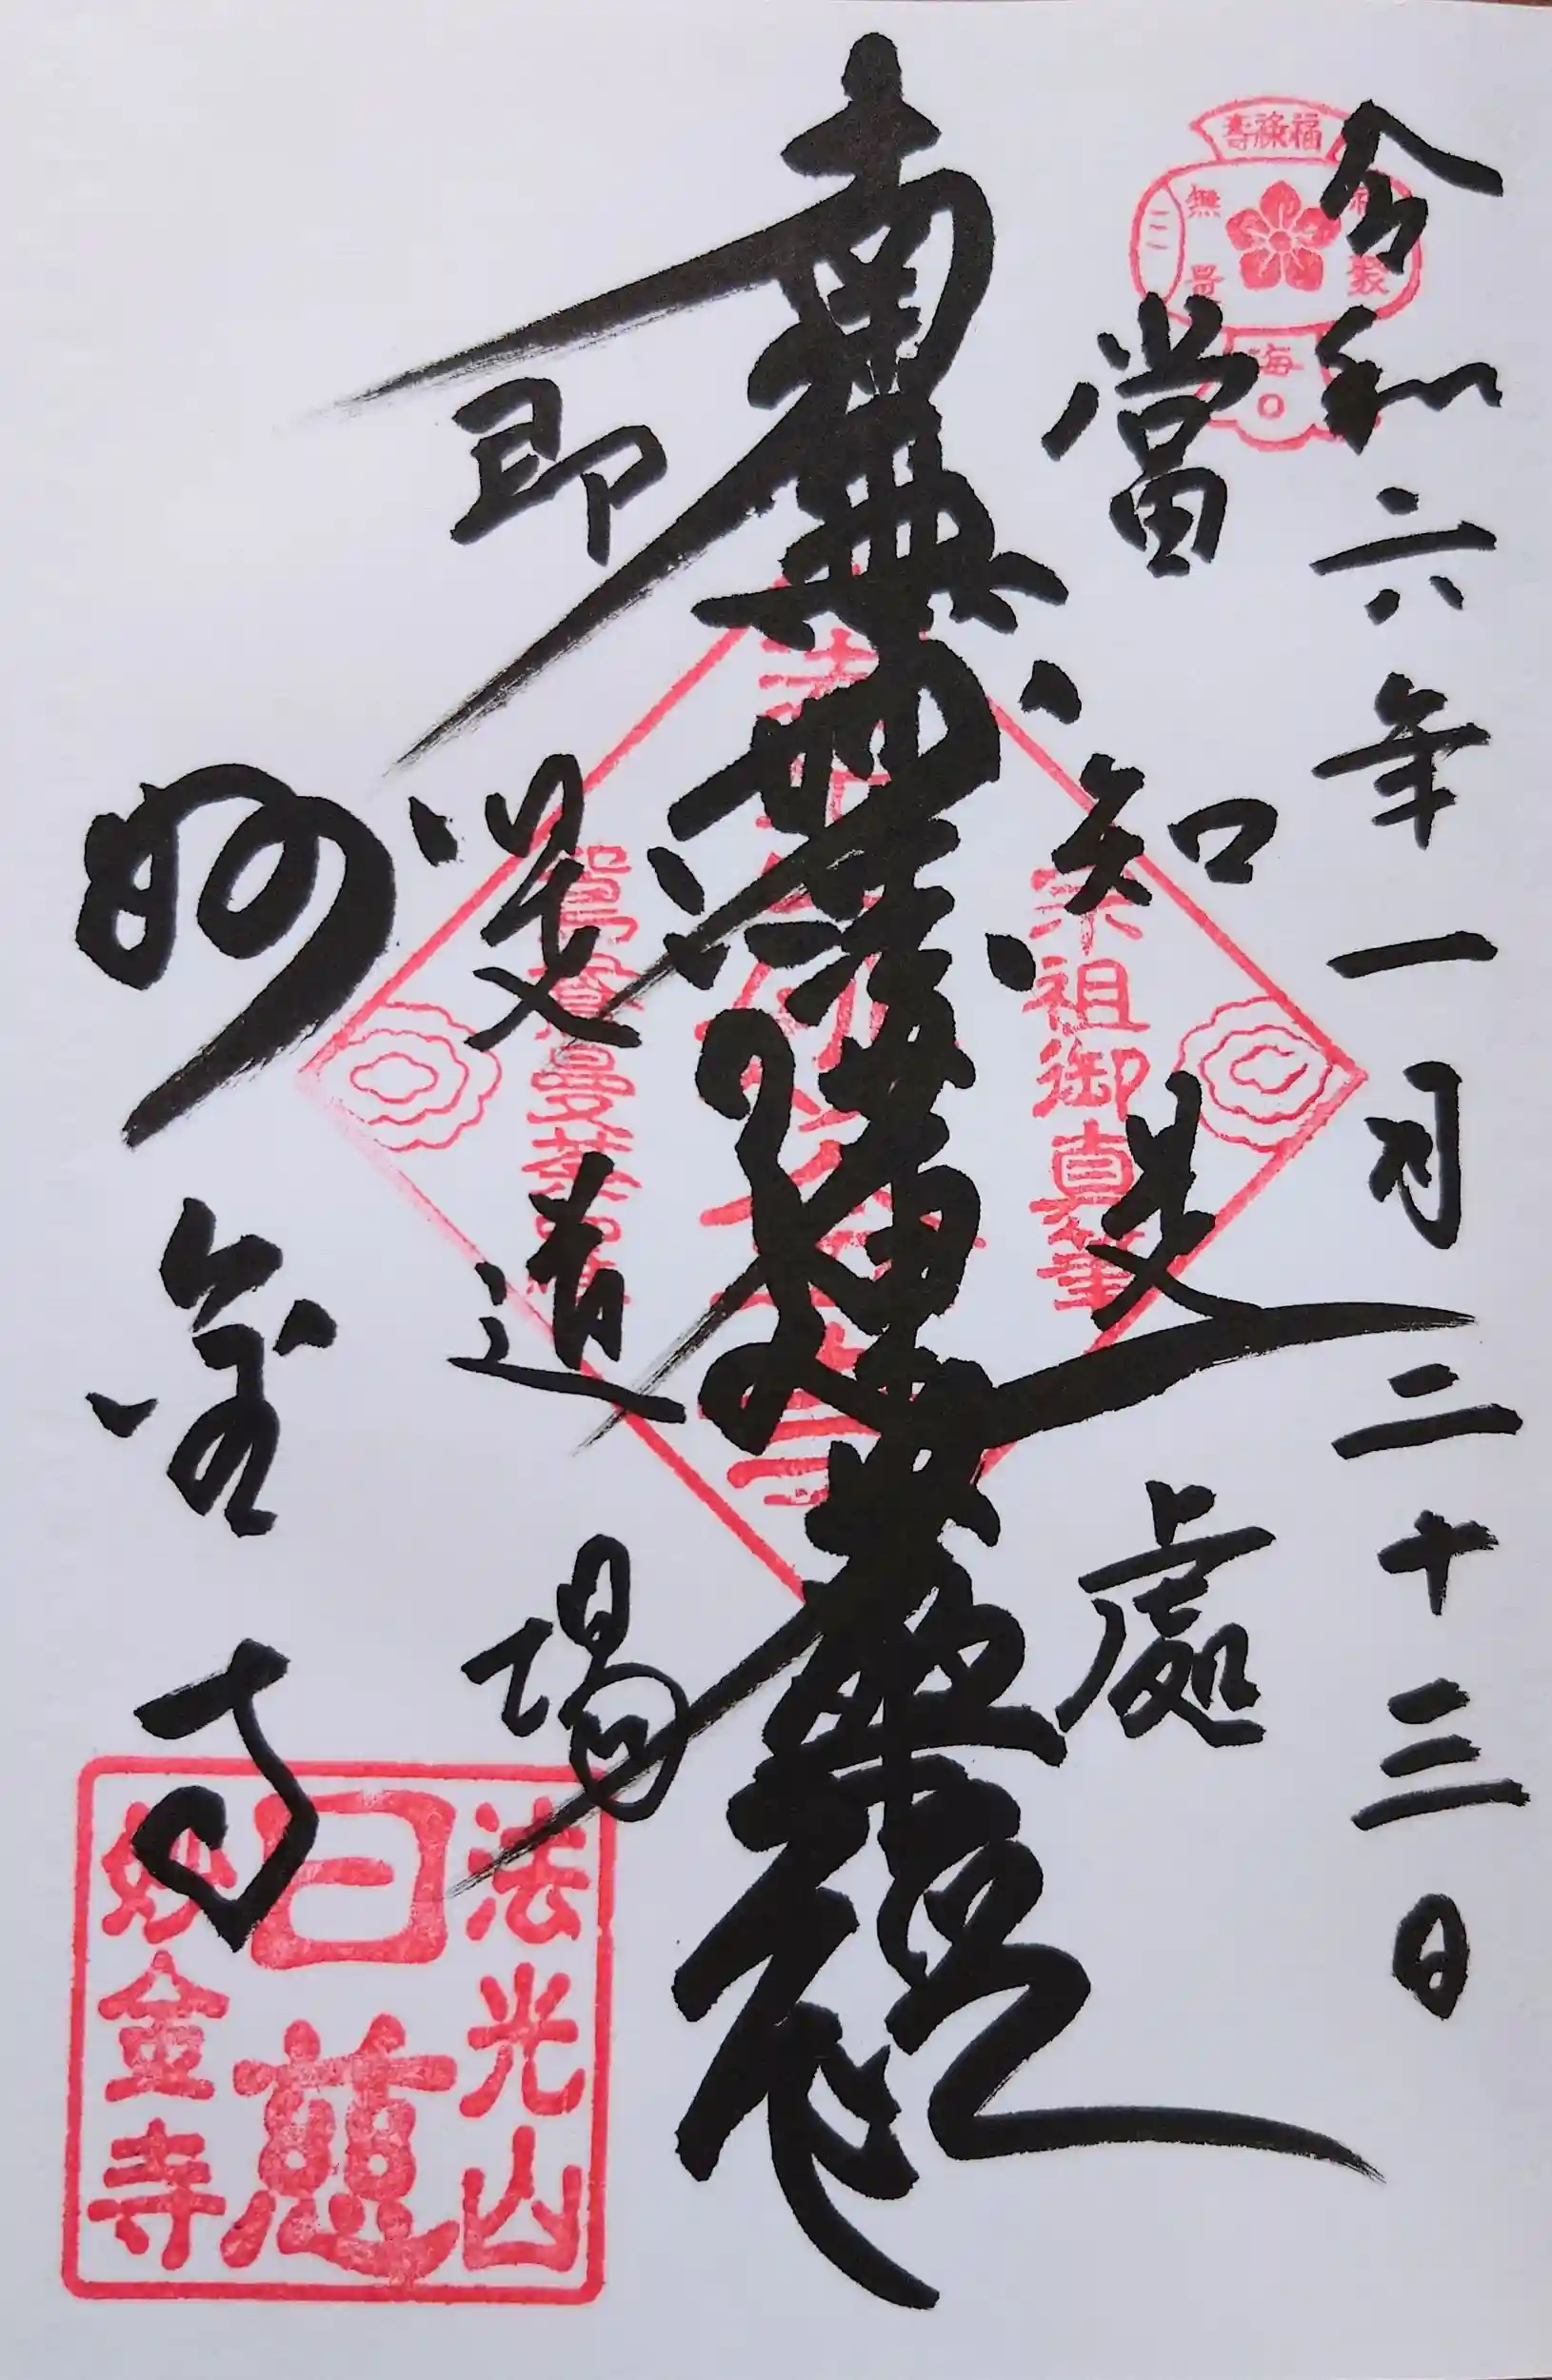 令和六年一月二十三日
當知是處
南無妙法蓮華経
即是道場
妙金寺
福祿壽
宗祖御真筆
法光山
日慈
妙金寺